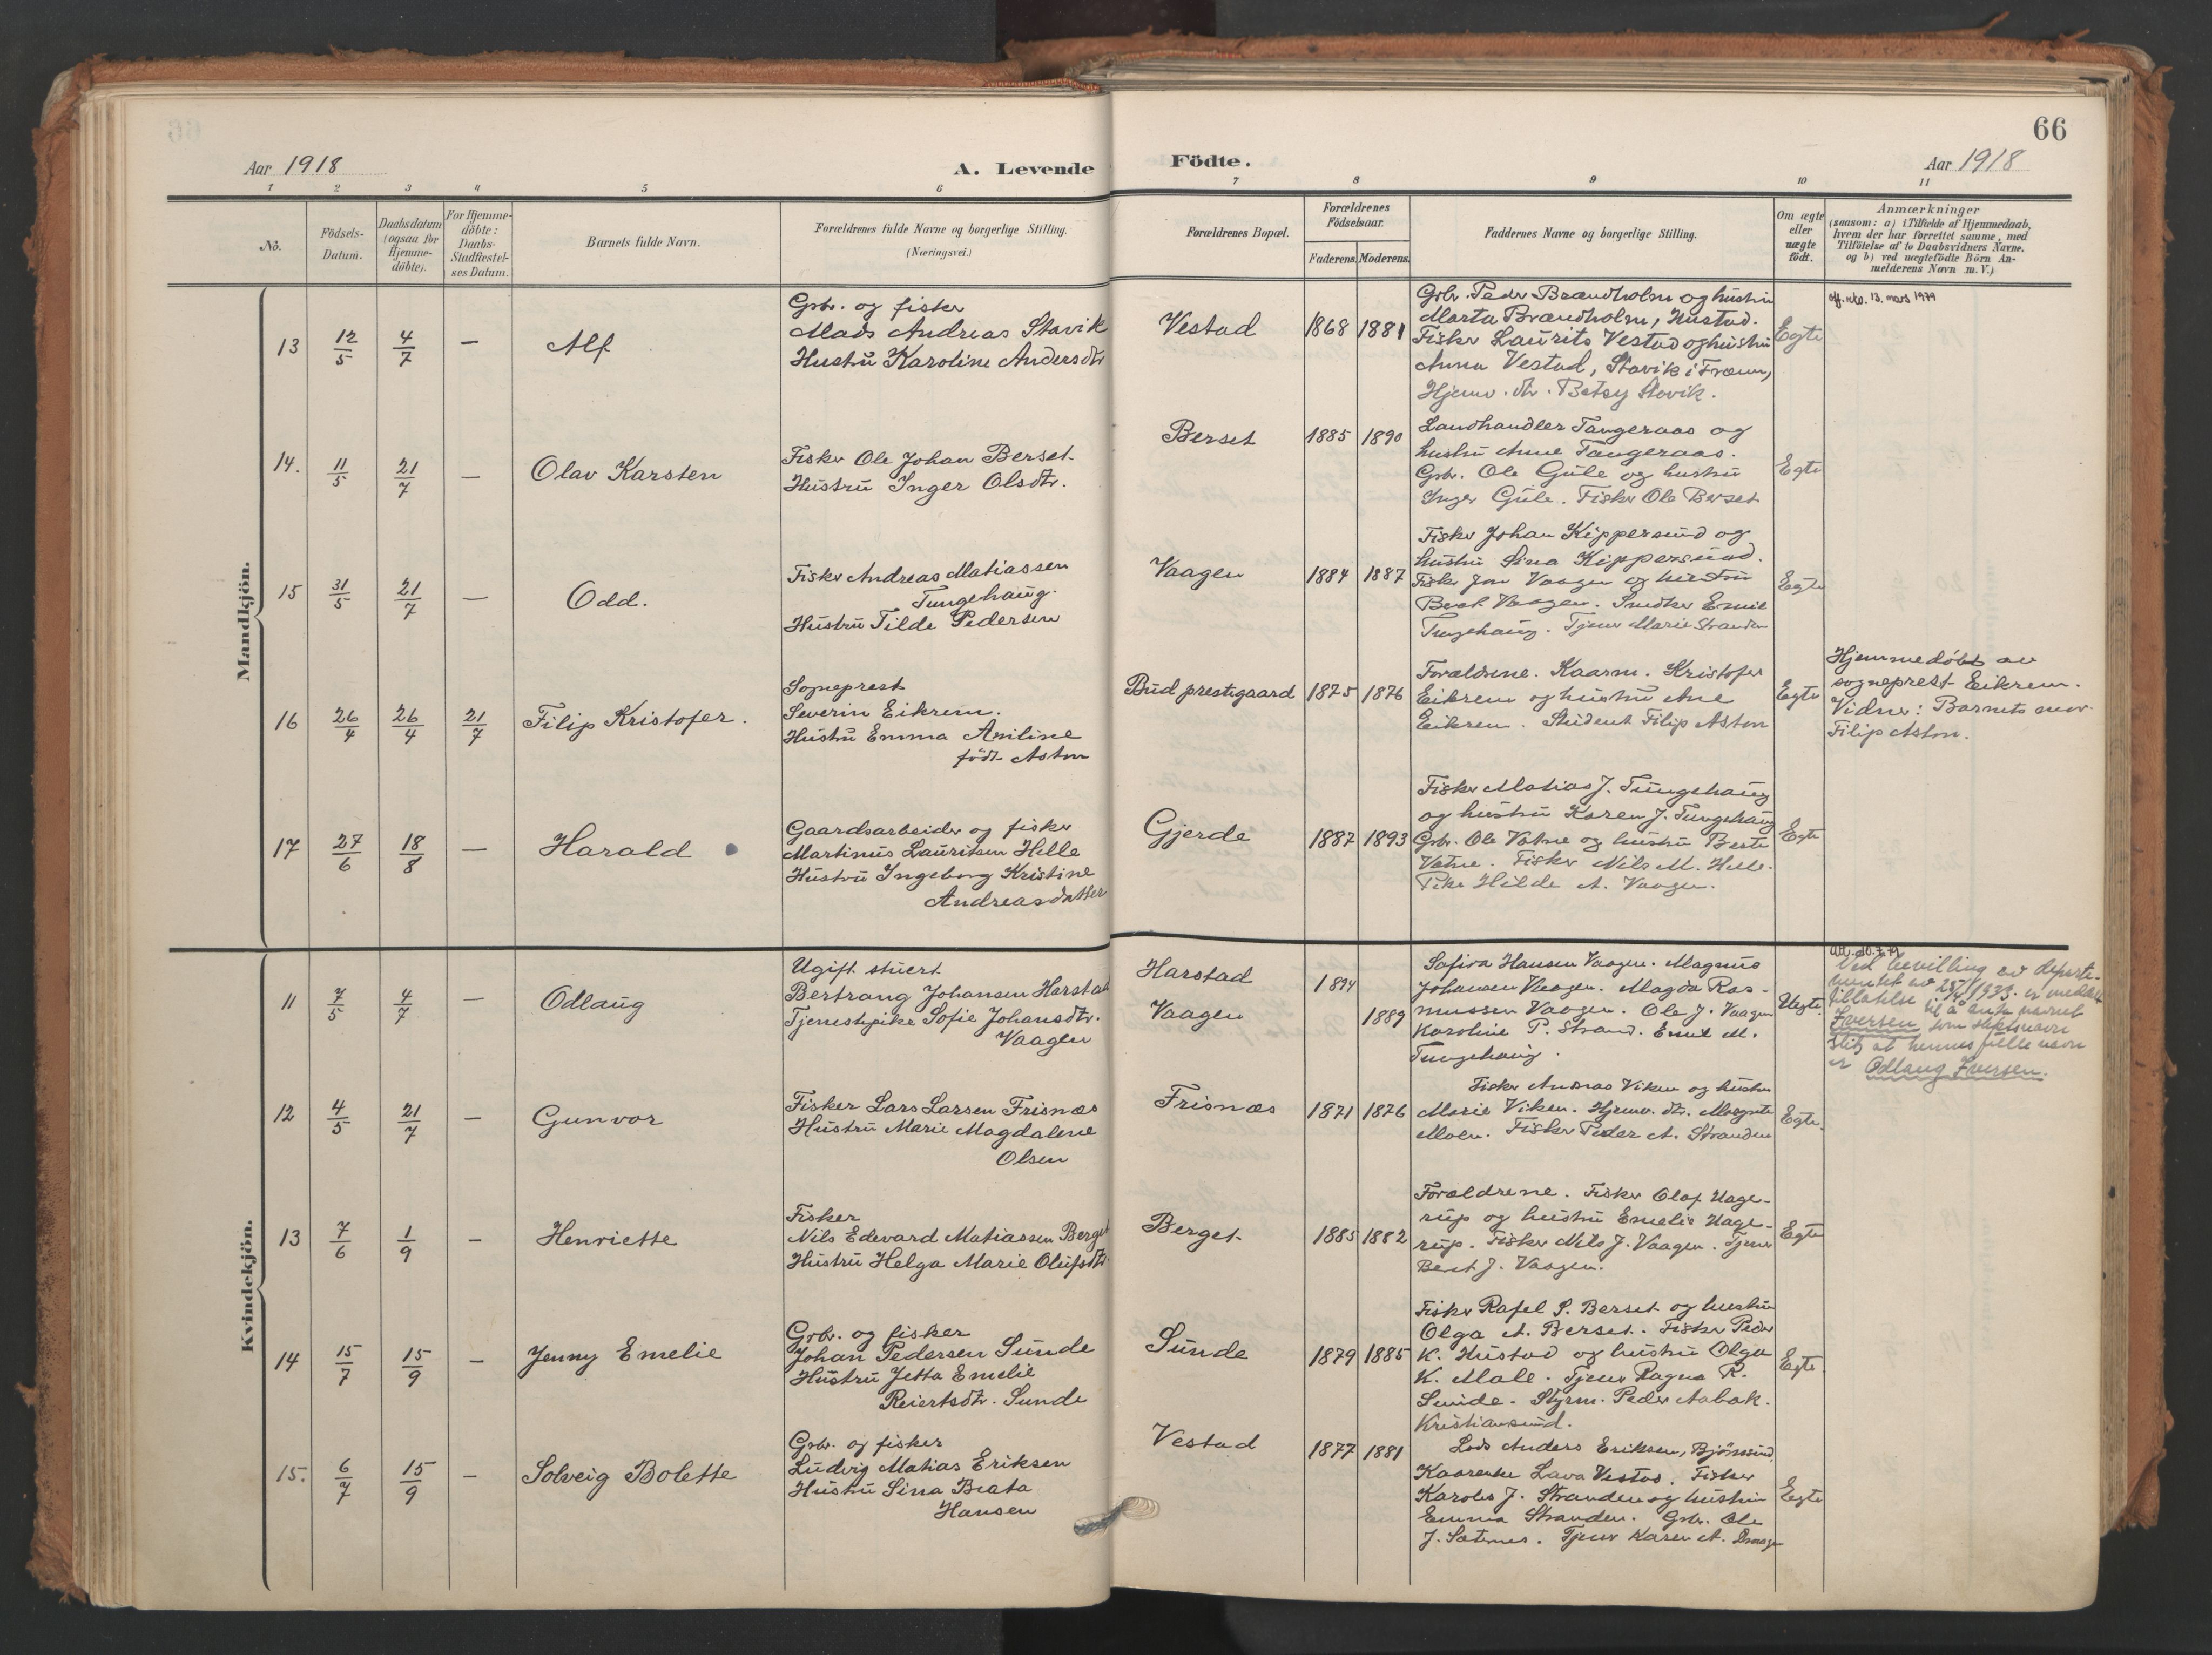 66
Aar 1918
A. Levende Födte.
Aar 1918
1 2 3 4 5 6 7 8 9 10 11
No.
Födsels-
Datum.
Daabsdatum
(ogsaa for
Hjemme-
döbte).
For Hjemme-
döbte:
Daabs-
Stadfæstel-
ses Datum.
Barnets fulde Navn.
Forældrenes fulde Navne og borgerlige Stilling.
(Næringsvei.)
Forældrenes Bopæl.
Forældrenes
Födselsaar.
Faderens. Moderens.
Faddernes Navne og borgerlige Stilling.
Om ægte
eller
uægte
födt.
Anmærkninger
(saasom: a) i Tilfælde af Hjemmedaab,
hvem der har forrettet samme, med
Tilföielse af to Daabsvidners Navne.
og b) ved uægtefödte Börn An-
melderens Navn m. V.)
Mandkjön.
13 12/5 4/7 — Alf
Grbr. og fisker
Mads Andreas Stavik
Hustru Karoline Andersdtr
Vestad 1868 1881
Grbr. Peder Brandholm og hustru
Marta Brandholm, Hustad.
Fisker Laurits Vestad og hustru
Anna Vestad, Stavik i Fræna,
Hjemv. dtr. Betsy Stavik.
Egte
13. mars 1979
14. 11/5 21/7 — Olav Karsten
Fisker Ole Johan Berset
Hustru Inger Olsdtr.
Berset 1885 1890
Landhandler Tangeraas og
hustru Anne Tangeraas.
Grbr. Ole Gule og hustru
Inger Gule. Fisker Ole Berset
Egte
15 31/5 21/7 — Odd.
Fisker Andreas Matiassen
Tungehaug.
Hustru Tilde Pedersen
Vaagen 1884 1887
Fisker Johan Kippersund og
hustru Sina Kippersund.
Fisker Jon Vaagen og hustru
Berit Vaagen. Snedker Emil
Tungehaug. Tjener Marie Stranden
Egte
16 26/4 26/4 21/7 Filip Kristofer.
Sogneprest
Severin Eikrem.
Hustru Emma Amiline
født Aston
Bud prestegaard 1875 1876
Forældrene. Kaarm. Kristofer
Eikrem og hustru Ane
Eikrem. Student Filip Aston
Egte
Hjemmedøbt av
sogneprest Eikrem.
Vidner: Barnets mor
Filip Aston.
17 27/6 18/8 — Harald
Gaardsarbeider og fisker
Martinus Lauritsen Helle
Hustru Ingeborg Kristine
Andreasdatter
Gjerde 1887 1893
Fisker Matias J. Tungehaug
og hustru Karen J. Tungehaug
Grbr. Ole Vatne og hustru Berte
Vatne. Fisker Nils M. Helle.
Pike Hilde A. Vaagen.
Egte
Kvindekjön.
11 7/5 4/7 — Odlaug
Ugift stuert
Bertrang Johansen Harstad
Tjenestepike Sofie Johansdtr.
Vaagen
Harstad 1894
Vaagen 1889
Sofira Hansen Vaagen. Magnus
Johansen Vaagen. Magda Ras-
mussen Vaagen. Ole J. Vaagen
Karoline P. Strand. Emil M.
Tungehaug.
Uegte.
Ved bevilling av departe-
mentet av 1933 er meddelt
tillatelse til å anta navnet
Iversen som slektsnavn
slik at hennes fulle navn
er Odlaug Iversen.
12 4/5 21/7 — Gunvor
Fisker Lars Larsen Frisnæs
Hustru Marie Magdalene
Olsen
Frisnæs 1871 1876
Fisker Andreas Viken og hustru
Marie Viken. Hjemv. dtr. Margrete
Moen. Fisker Peder A. Stranden
Egte.
13 7/6 1/9 — Henriette
Fisker
Nils Edevard Matiassen Berget
Hustru Helga Marie Olufsdtr.
Berget 1885 1882
Forældrene. Fisker Olaf Hage-
rup og hustru Emelie Hage-
rup. Fisker Nils J. Vaagen. Tjener
Berit J. Vaagen.
Egte
14 15/7 15/9 — Jenny Emelie
Grbr. og fisker
Johan Pedersen Sunde
Hustru Jetta Emelie
Reiertsdtr. Sunde
Sunde 1879 1885
Fisker Rafel S. Berset og hustru
Olga A. Berset. Fisker Peder
K. Hustad og hustru Olga
K. Male. Tjener Ragna R.
Sunde. Styrm. Peder Aabak.
Kristiansund.
Egte.
15. 6/7 15/9 — Solveig Bolette
Grbr. og fisker
Ludvig Matias Eriksen
Hustru Sina Beata
Hansen
Vestad 1877 1881
Lods Anders Eriksen, Bjørnsund
Lava Vestad. Fisker
Karoles J. Stranden og hustru
Emma Stranden. Grbr. Ole
J. Sæternes. Tjener Karen A.
Egte